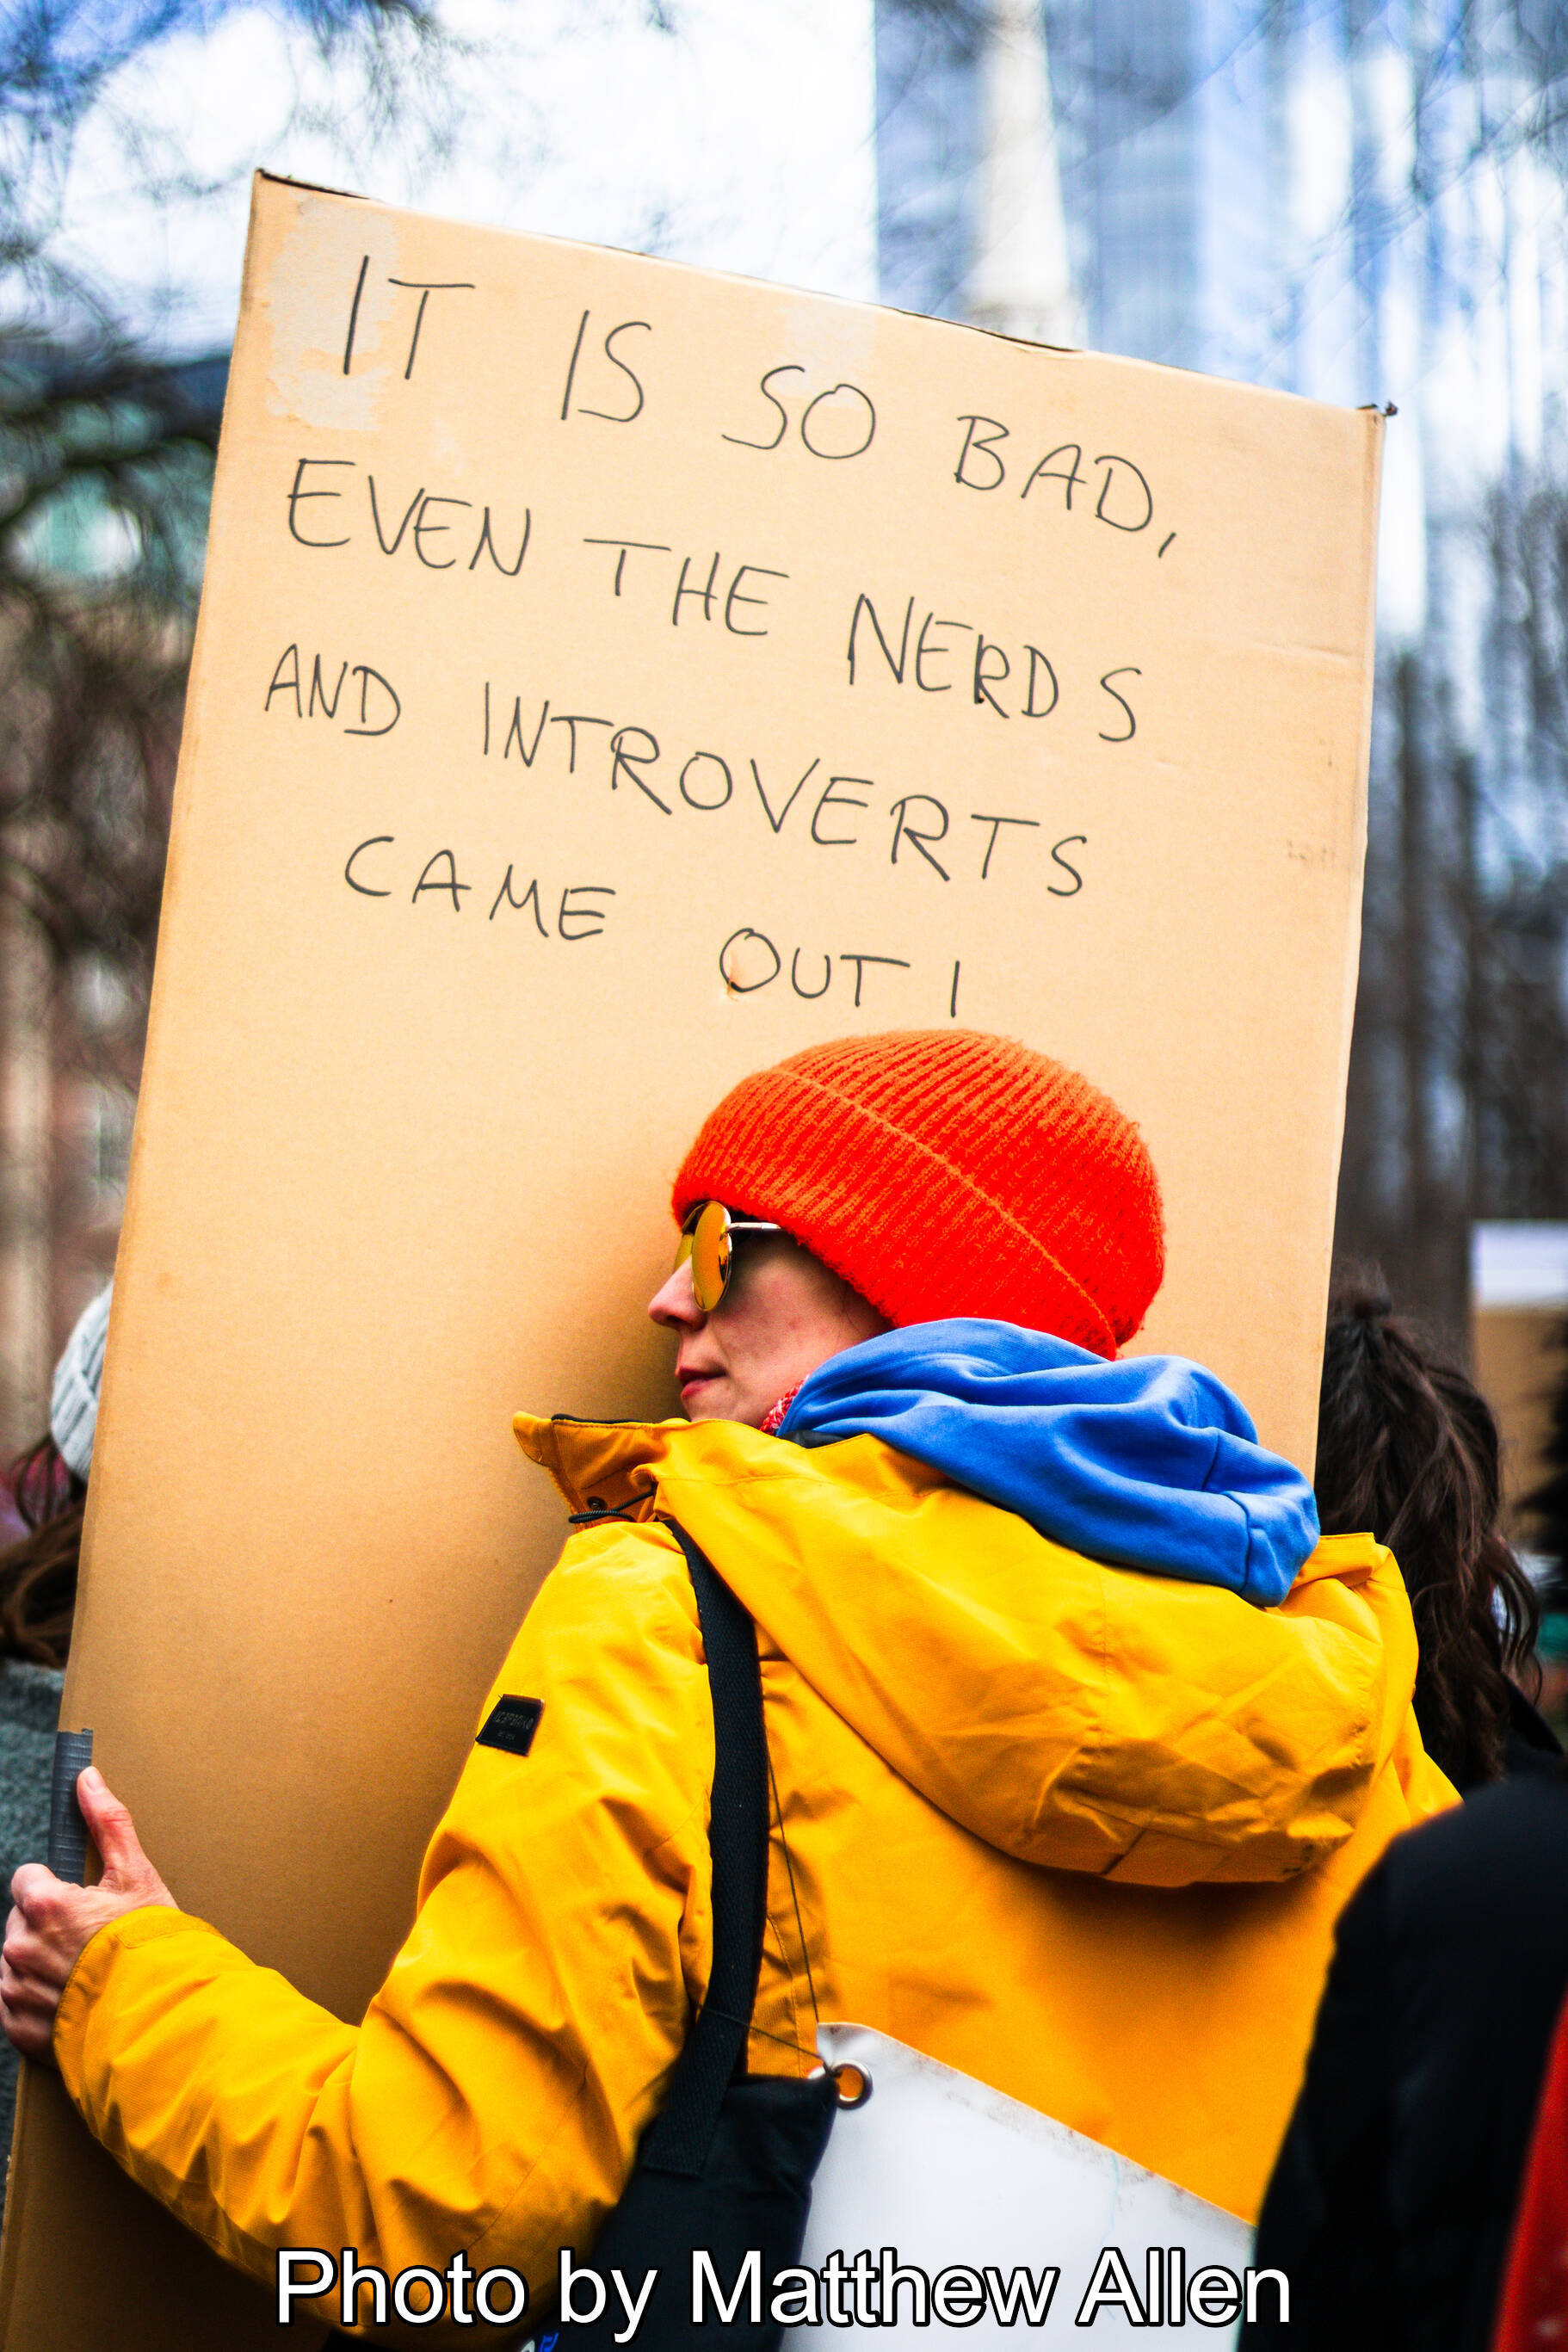 IT IS SO BAD,
EVEN THE NERDS
AND INTROVERTS
CAME OUT!
Photo by Matthew Allen